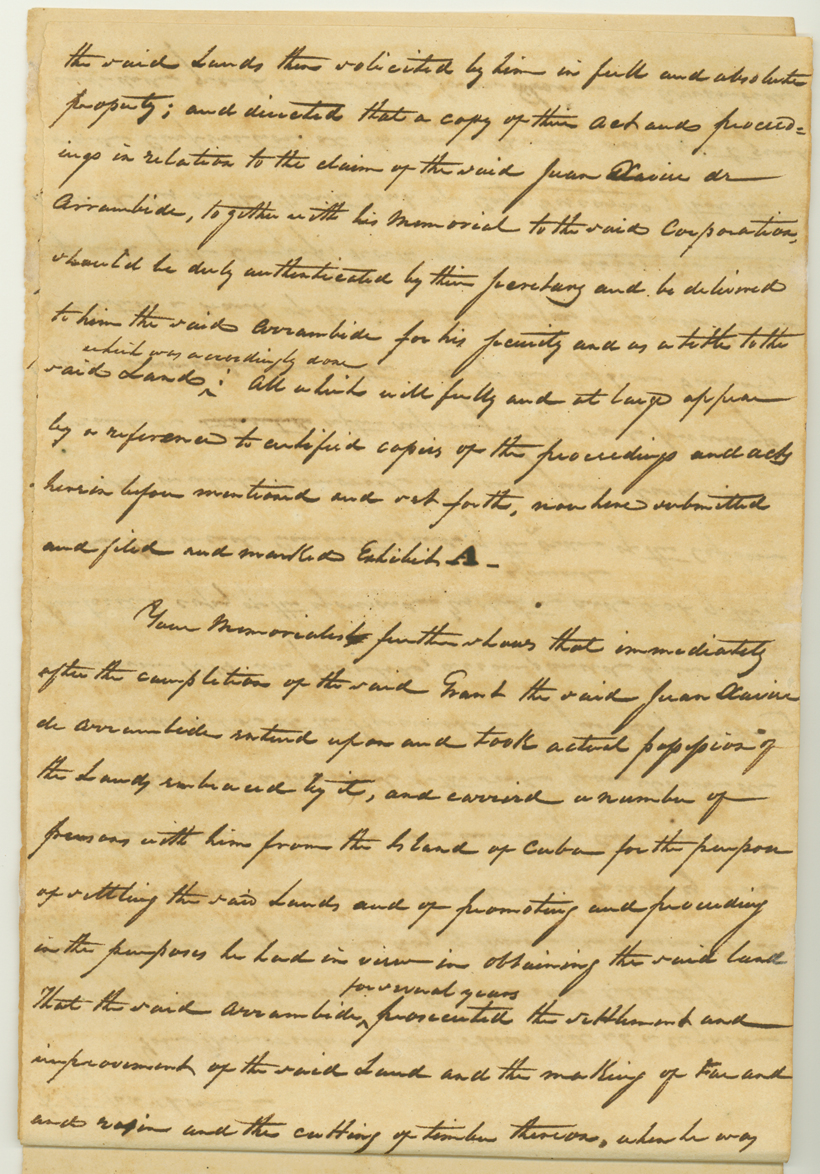 the said Lands thus solicited by him in full and absolute
property; and directed that a copy of their Act and proceed=
ings in relation to the claim of the said Juan Xavier de
Arrambide, together with his Memorial to the said Corporation,
should be duly authenticated by their Secretary and be delivered
to him the said Arrambide for his security and as a title to the
which was accordingly done
said Land; All which will fully and at large appear
by a reference to certified copies of the proceedings and acts
herein before mentioned and set forth, now here submitted
and filed and marked Exhibit A -
Your Memorialist further shows that immediately
after the completion of the said Grant the said Juan Xavier
de Arrambide entered upon and took actual possession of
the Lands embraced by it, and carried a number of
persons with him from the Island of Cuba for the purpose
of settling the said Lands and of promoting and proceeding
in the purposes he had in view in obtaining the said land
for several years
That the said Arrambide, prosecuted the settlement and
improvement of the said Land and the making of Tar and
and rosin and the cutting of timber thereon, when he was